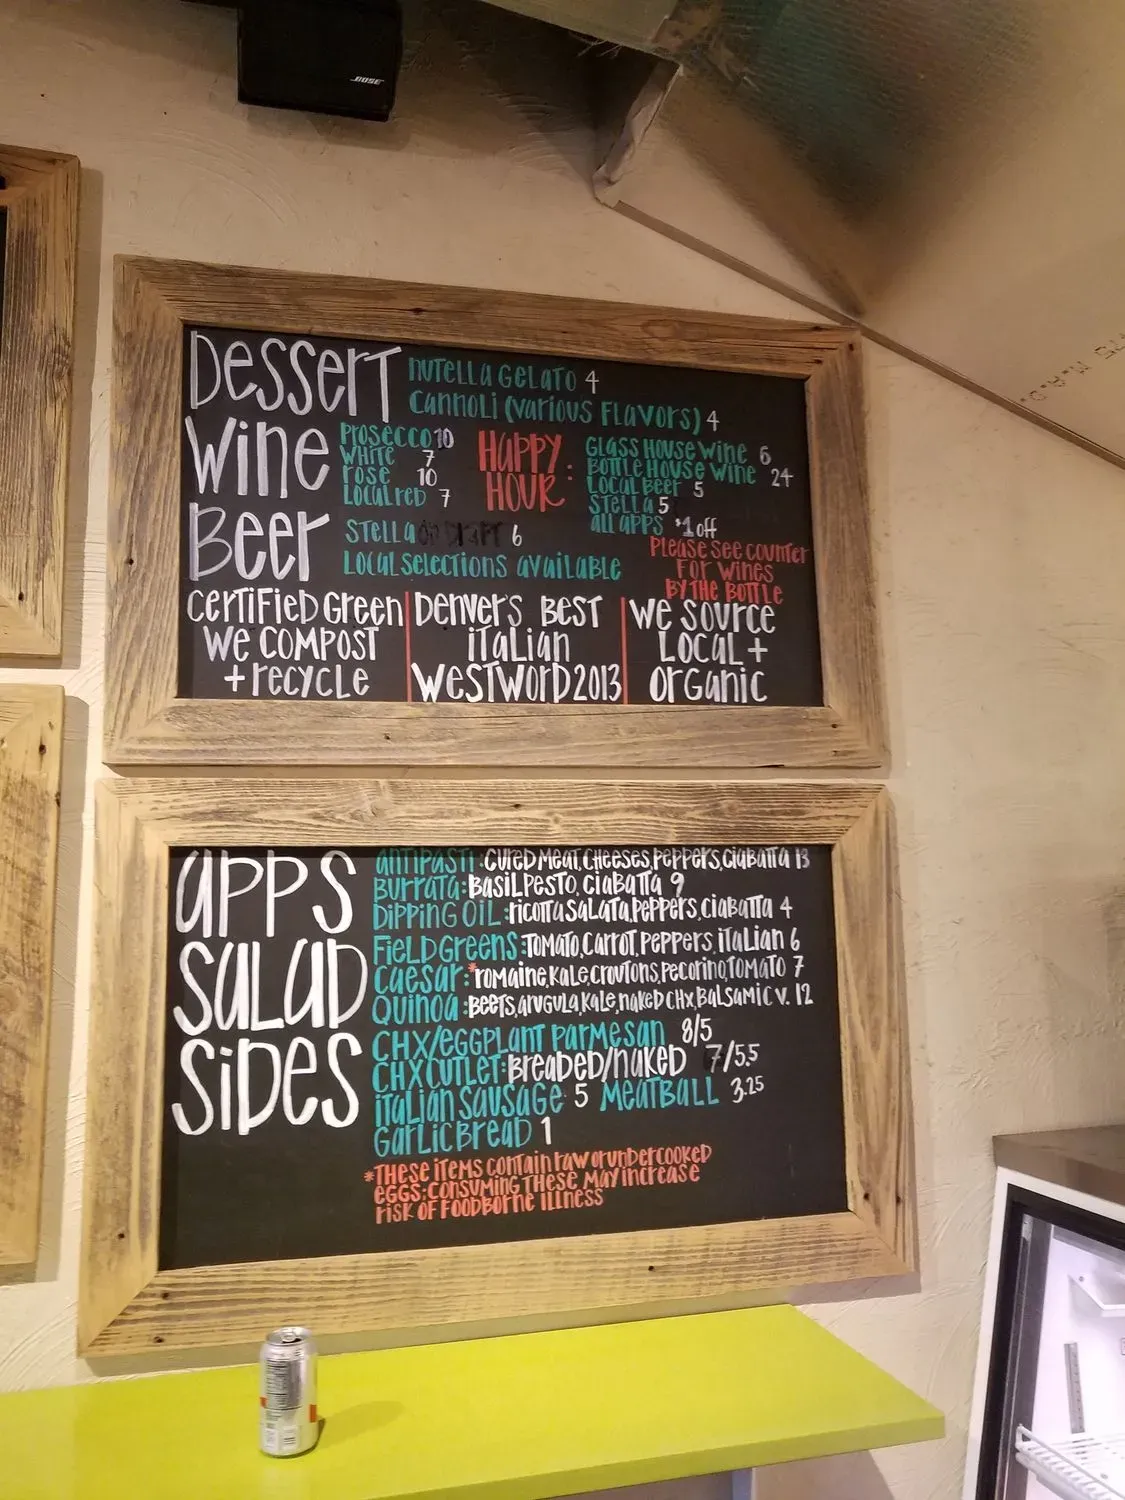 BOSE
Dessert
Nutella Gelato 4
Cannoli (Various Flavors) 4
Wine
Prosecco 10
White 7
Rose 10
Local red 7
Happy Hour:
Glass House Wine 6
Bottle House Wine 24
Local Beer 5
Stella 5
All apps $1 off
Beer
Stella 6
Local selections available
Please see counter
for wines
by the bottle
Certified Green
We compost
+ recycle
Denver's Best
Italian
Westword 2013
We source
local +
organic
Apps
Antipasti: Cured meat, cheeses, peppers, ciabatta 13
Burrata: Basil pesto, ciabatta 9
Dipping Oil: ricotta salata, peppers, ciabatta 4
Salad
Field Greens: Tomato, carrot, peppers, italian 6
Caesar:*romaine, kale, croutons, pecorino, tomato 7
Quinoa: Beets, arugula, kale, naked chx, balsamic v. 12
Sides
Chx/Eggplant Parmesan 8/5
Chx Cutlet: Breaded/naked 7/5.5
Italian Sausage 5 Meatball 3.25
Garlic Bread 1
*These items contain raw or undercooked
eggs; consuming these may increase
risk of foodborne illness